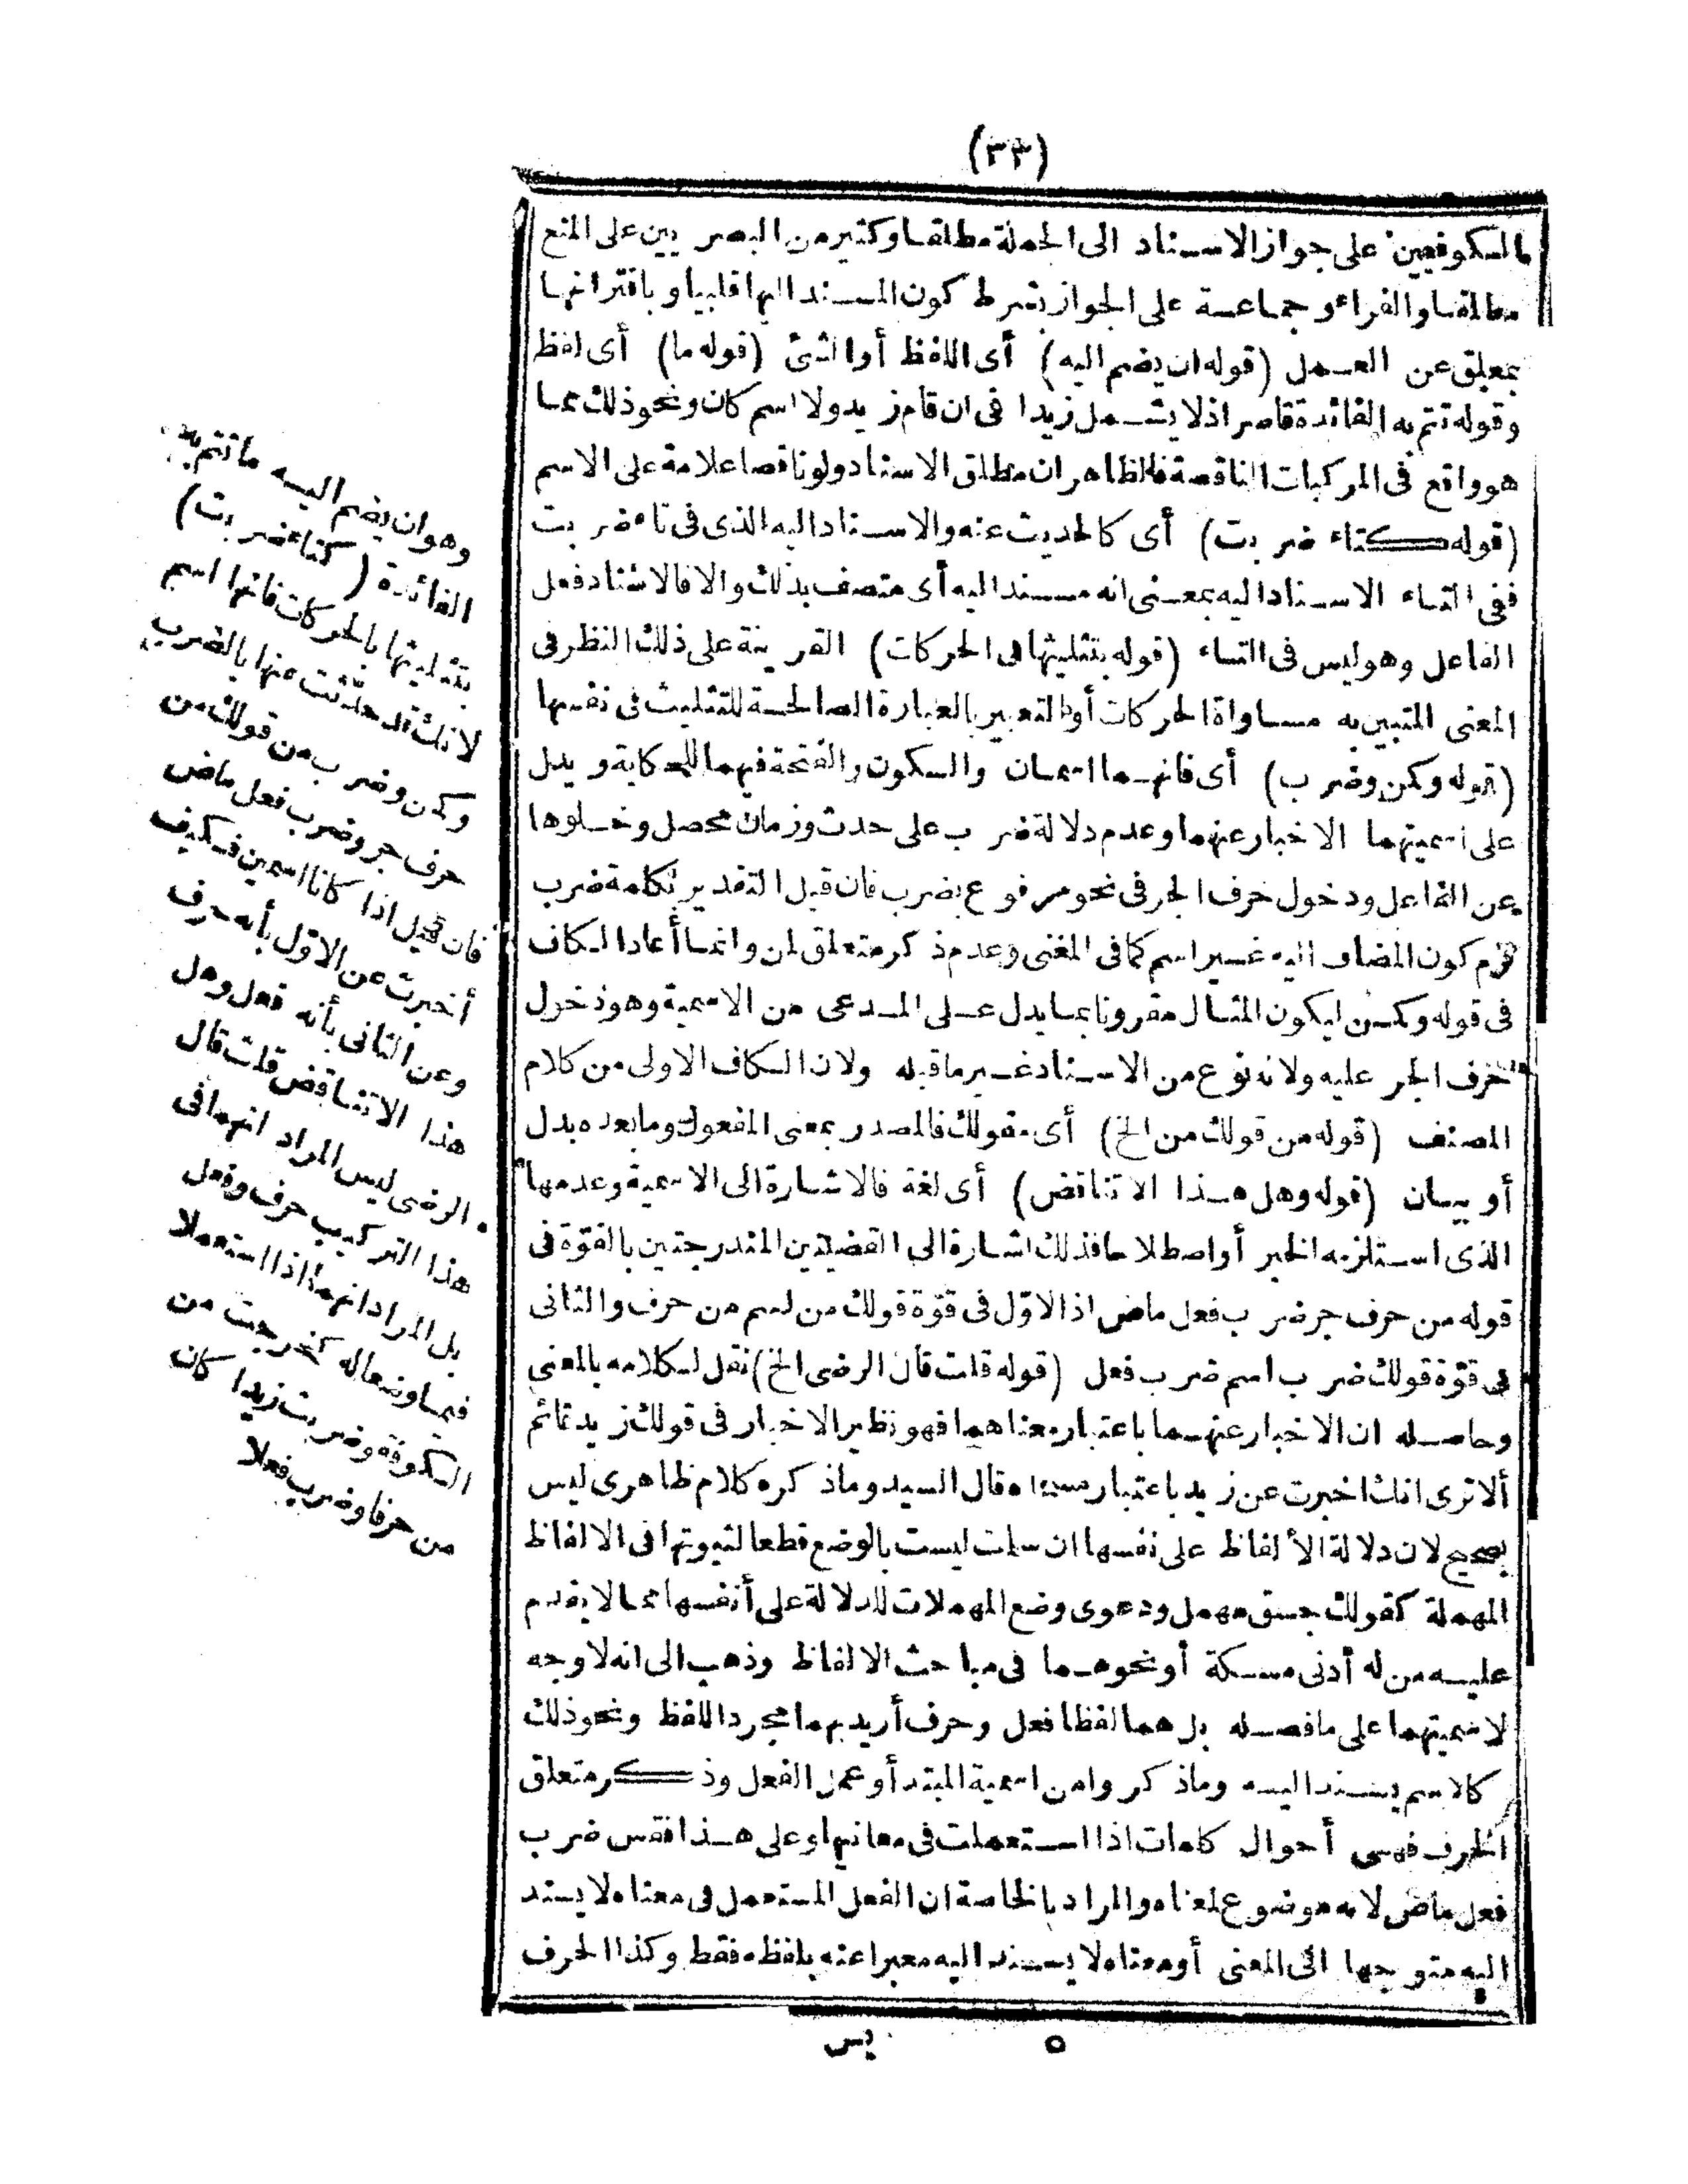 (٣٣)
فالكوفيين على جواز الاسناد الى الجملة مطلقا وكثير من البصريين على المنع
مطلقا والفراء وجماعة على الجواز بشرط كون المسند اليها قلبيا وباقترانها
بمعلق عن العمل (قوله ان يضم اليه) أى اللفظ أو الشئ (قوله ما) أى لفظ
وقوله تتم به الفائدة قاصر اذلا يشمل زيدا فى ان قام زيد ولا اسم كان ونحو ذلك مما
هو واقع فى المركبات الناقصة فالظاهر ان مطلق الاسناد ولو ناقصا علامة على الاسم
(قوله كتاء ضربت) أى كالحديث عنه والاسناد اليه الذى فى تاء ضربت
ففى التاء الاسناد اليه بمعنى انه مسند اليه أى متصف بذلك والا فالاسناد فعل
الفاعل وهو ليس فى التاء (قوله بتثليثها فى الحركات) القرينة على ذلك النظر فى
المعنى المتبين به مساواة الحركات أو التعبير بالعبارة الصالحة للتثليث فى نفسها
(قوله وكمن وضرب) أى فانهما اسمان والسكون والفتحة فيهما للحكاية ويدل
على اسميتهما الاخبار عنهما وعدم دلالة ضرب على حدث وزمان محصل وخلوها
عن الفاعل ودخول حرف الجر فى نحو مرفوع بضرب فان قيل التقدير بكلمة ضرب
لزم كون المضاف اليه غير اسم كما فى المغنى وعدم ذكر متعلق لمن وانما أعاد الكاف
فى قوله وكمن ليكون المثال مقرونا بما يدل على المدعى من الاسمية وهو دخول
حرف الجر عليه ولانه نوع من الاسناد غير ما قبله ولان الكاف الاولى من كلام
المصنف (قوله من قولك من الخ) أى مقولك فالمصدر بمعنى المفعول وما بعده بدل
أو بيان (قوله وهل هذا الا تناقض) أى لغة فالاشارة الى الاسمية وعدمها
الذى استلزمه الخبر أو اصطلاحا فذلك اشارة الى القضيتين المندرجتين بالقوّة فى
قوله من حرف جر ضرب فعل ماض اذ الاوّل فى قوّة قولك من اسم من حرف والثانى
فى قوّة قولك ضرب اسم ضرب فعل (قوله قلت قال الرضى الخ) نقل لكلامه بالمعنى
وحاصله ان الاخبار عنهما باعتبار معناهما فهو نظير الاخبار فى قولك زيد قائم
ألا ترى انك اخبرت عن زيد باعتبار مسماه قال السيد وماذكره كلام ظاهرى ليس
بصحيح لان دلالة الألفاظ على نفسها ان سلمت ليست بالوضع قطعا لثبوتها فى الالفاظ
المهملة كقولك جسق مهمل ودعوى وضع المهملات للدلالة على أنفسها مما لا يقدم
عليه من له أدنى مسكة أو نحوهما فى مباحث الالفاظ وذهب الى انه لا وجه
لاسميتهما على ما فصله بل هما لفظا فعل وحرف أريد بهما مجرد اللفظ ونحو ذلك
كالاسم يسند اليه وماذكروا من اسمية المبتدأ وعمل الفعل وذكر متعلق
الحرف فهى أحوال كلمات اذا استعملت فى معانيها وعلى هذا فقس ضرب
فعل ماض لانه موضوع لمعناه والمراد بالخاصة ان الفعل المستعمل فى معناه لا يسند
اليه متوجها الى المعنى أو معناه لا يسند اليه معبرا عنه بلفظه فقط وكذا الحرف
٥ يس
وهو ان يضم اليه ما تتم به
الفائدة (كتاء ضربت)
بتثليثها بالحركات فانها اسم
لانك قد حدّثت عنها بالضرب
وكمن وضرب من قولك من
حرف جر وضرب فعل ماض
فان قيل اذا كانا اسمين فكيف
أخبرت عن الاوّل بأنه حرف
وعن الثانى بأنه فعل وهل
هذا الا تناقض قلت قال
الرضى ليس المراد انهما فى
هذا التركيب حرف وفعل
بل المراد انهما اذا استعملا
فيما وضعا له كخرجت من
الكوفة وضربت زيدا كان
من حرفا وضرب فعلا